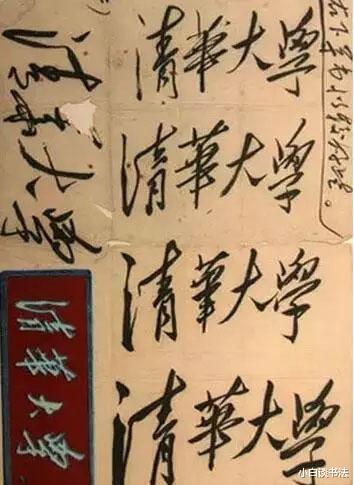 清華大學
清華大學
清華大學
清華大學
清華大學
清華大學
小白谈书法